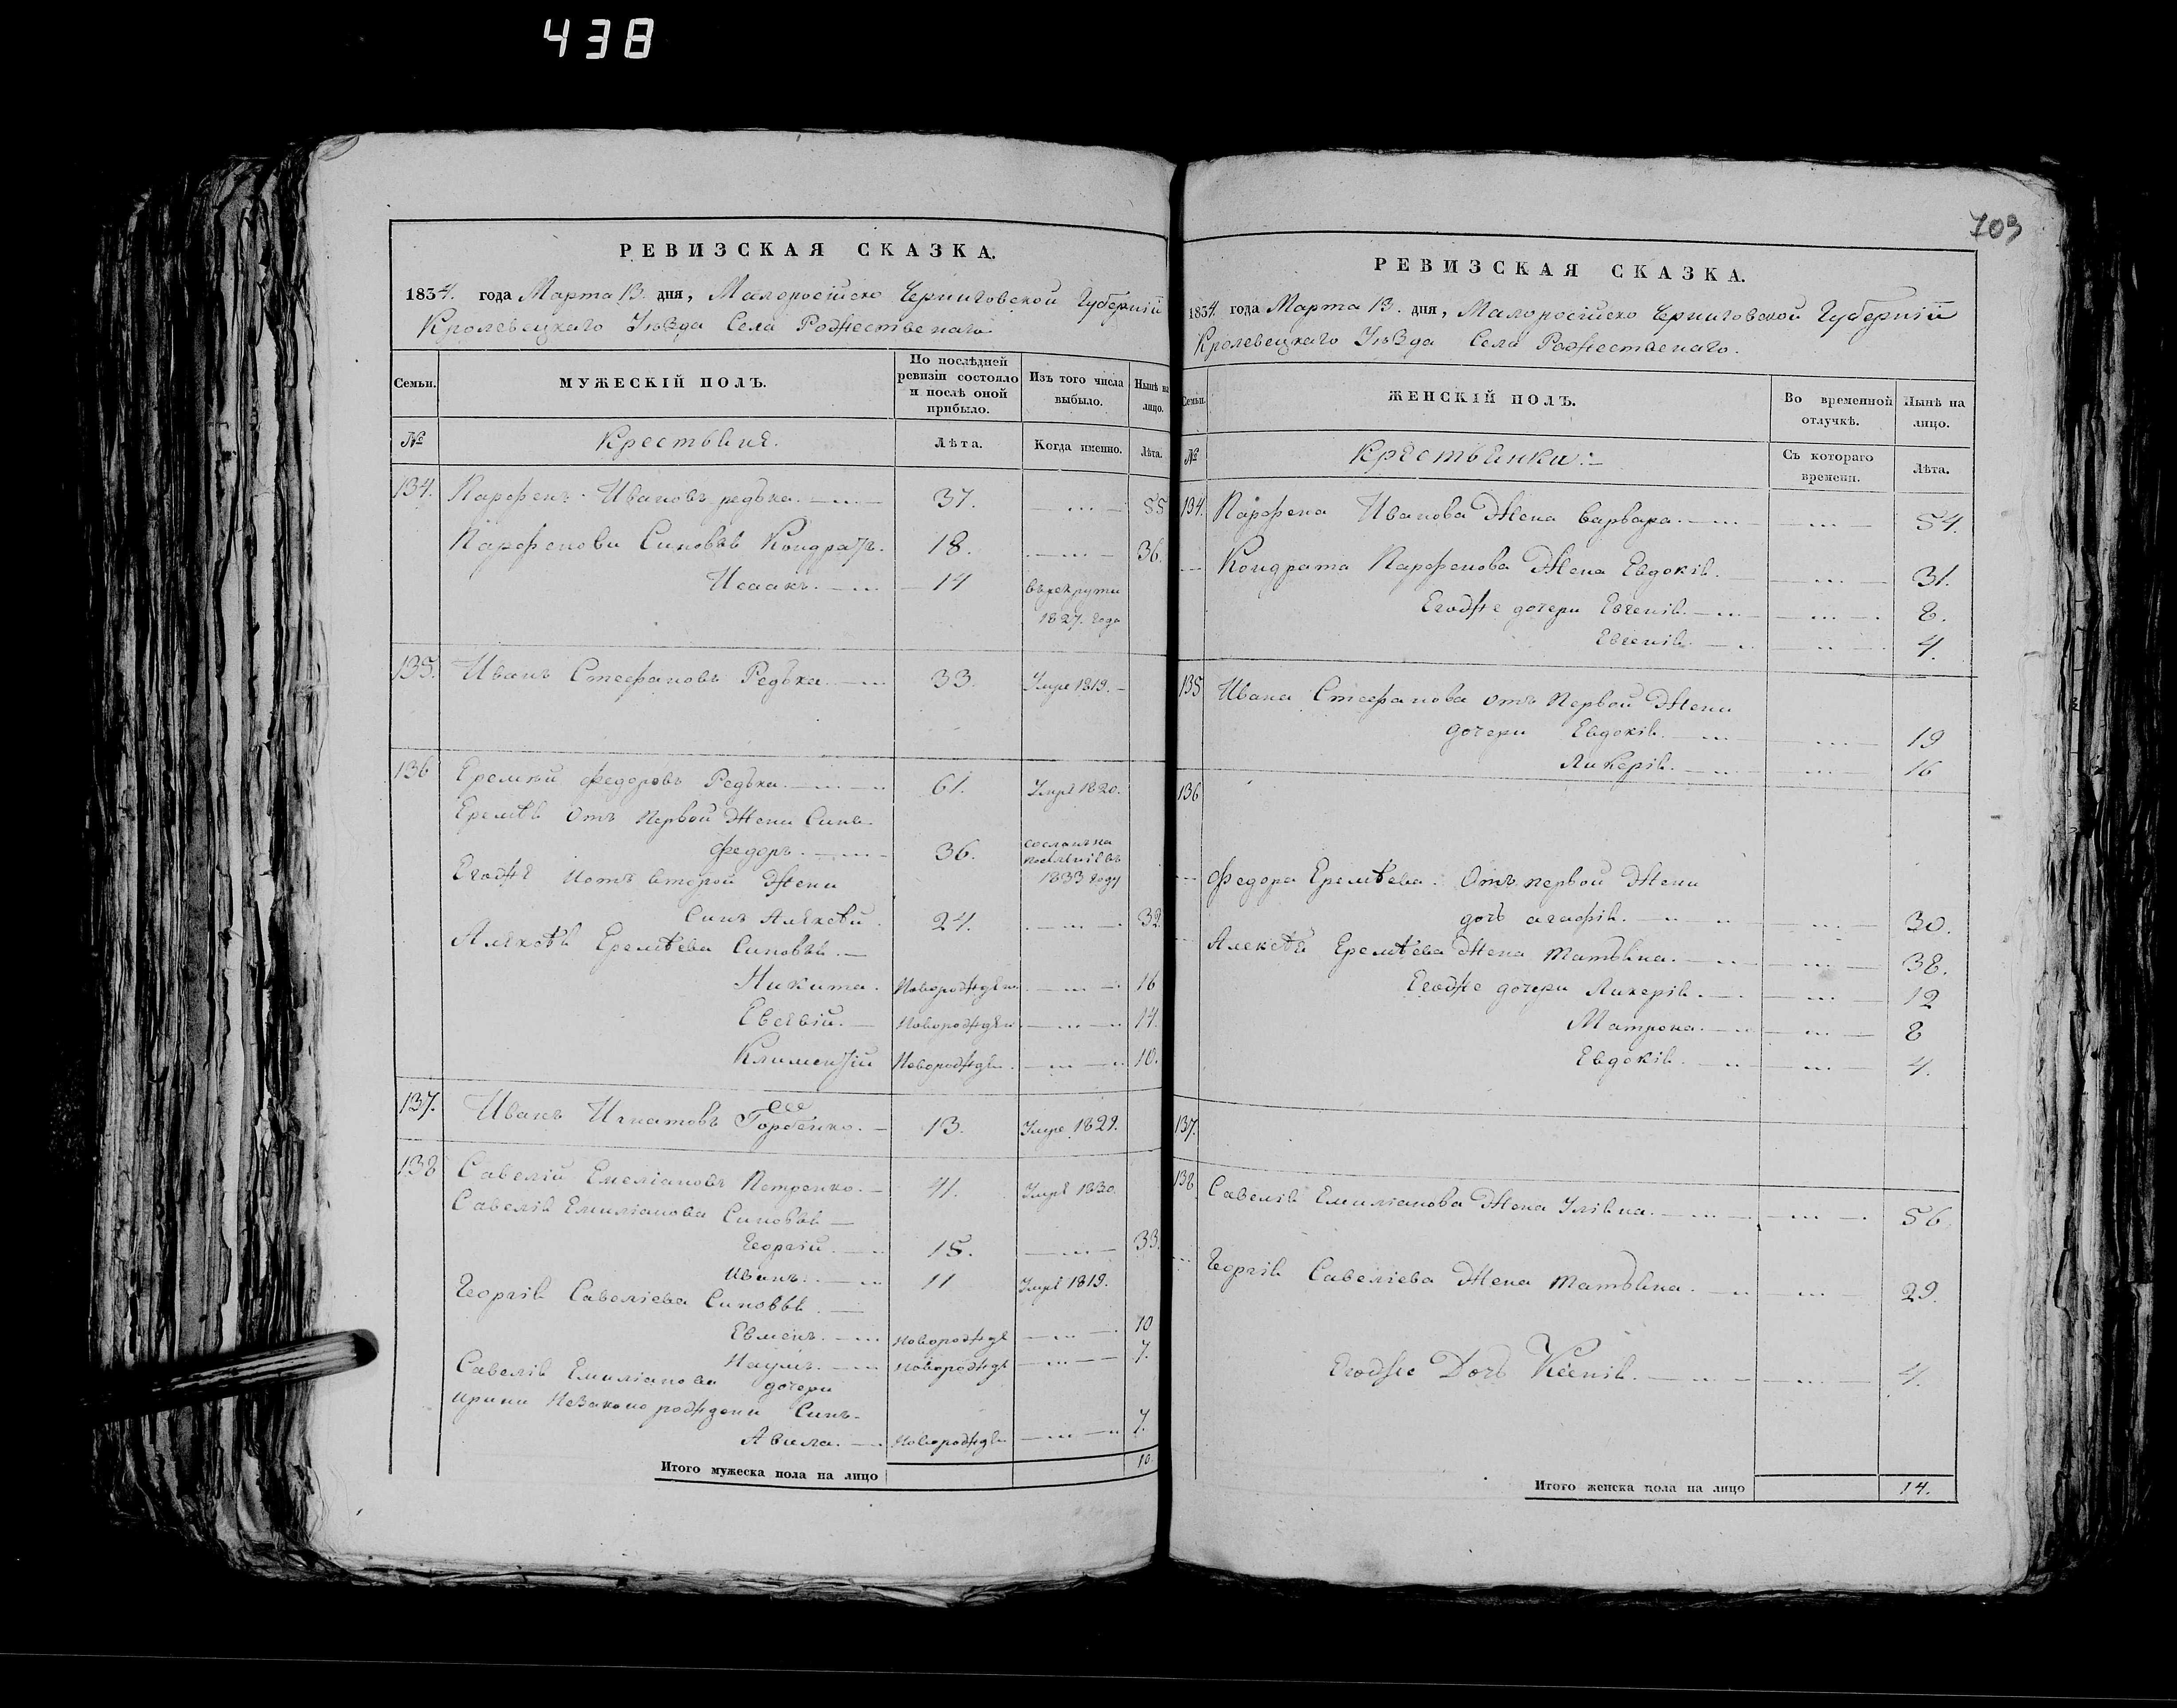 438
703
РЕВИЗСКАЯ СКАЗКА.
1834. года Марта 13. дня, Малоросійско Черниговской Губерніи
Кролевецкаго Уѣзда Села Рождественаго
Семьи.
МУЖЕСКІЙ ПОЛЪ.
По послѣдней ревизіи состояло и послѣ оной прибыло.
Изъ того числа выбыло.
Нынѣ на лицо.
№
Крестьяне.
Лѣта.
Когда именно.
Лѣта.
134. Парфенъ Ивановъ редька. 37. 55
Парфенови Синовья Кондратъ. 18. 36.
Исаакъ. 14 въ рекрути
1827. года
135. Иванъ Стефановъ Редька. 33. Умре 1819.
136 Еремѣй Федоровъ Редька. 61. Умре 1820.
Еремѣя Отъ Первой Жени Синъ
Федоръ. 36. сосланъ на
поселеніе въ
1833 году
Егоже и отъ второй Жени
Синъ Алексѣй. 24. 32
Алексѣя Еремѣева Синовья.
Никита. Новорожден 16
Евсѣвій. Новорожден 14.
Климентій Новорожден. 10.
137. Иванъ Игнатовъ Горбенко. 13. Умре 1829.
138 Савелій Емеліановъ Петренко. 41. Умре 1830.
Савелія Емиліанова Синовья
Георгій. 15. 33.
Иванъ. 11 Умре 1819.
Георгія Савеліева Синовья.
Евменъ. Новорожде 10
Наумъ. Новорожде 7.
Савелія Емиліанова дочери
Ирини Незаконорождени Синъ
Авила. Новорожден 7.
Итого мужеска пола на лицо 10.
РЕВИЗСКАЯ СКАЗКА.
1834. года Марта 13. дня, Малоросійско Черниговской Губерніи
Кролевецкаго Уѣзда Села Рождественаго.
Семьи.
ЖЕНСКІЙ ПОЛЪ.
Во временной отлучкѣ.
Нынѣ на лицо.
№
Крестьянки:
Съ котораго времени.
Лѣта.
134. Парфена Иванова Жена Варвара. 54.
Кондрата Парфенова Жена Евдокія. 31.
Егоже дочери Евгенія. 8.
Евгенія. 4.
135 Ивана Стефанова отъ Первой Жени
дочери Евдокія. 19
Ликерія. 16
136
Федора Еремѣева. Отъ первой Жени
дочь агафія. 30.
Алексѣй Еремѣева Жена Татьяна. 38.
Егоже дочери Ликерія. 12
Матрона. 8
Евдокія. 4.
137.
138. Савелія Емиліанова Жена Уліяна. 56
Георгія Савеліева Жена Татьяна. 29.
Егоже Дочь Ксенія. 4.
Итого женска пола на лицо 14.